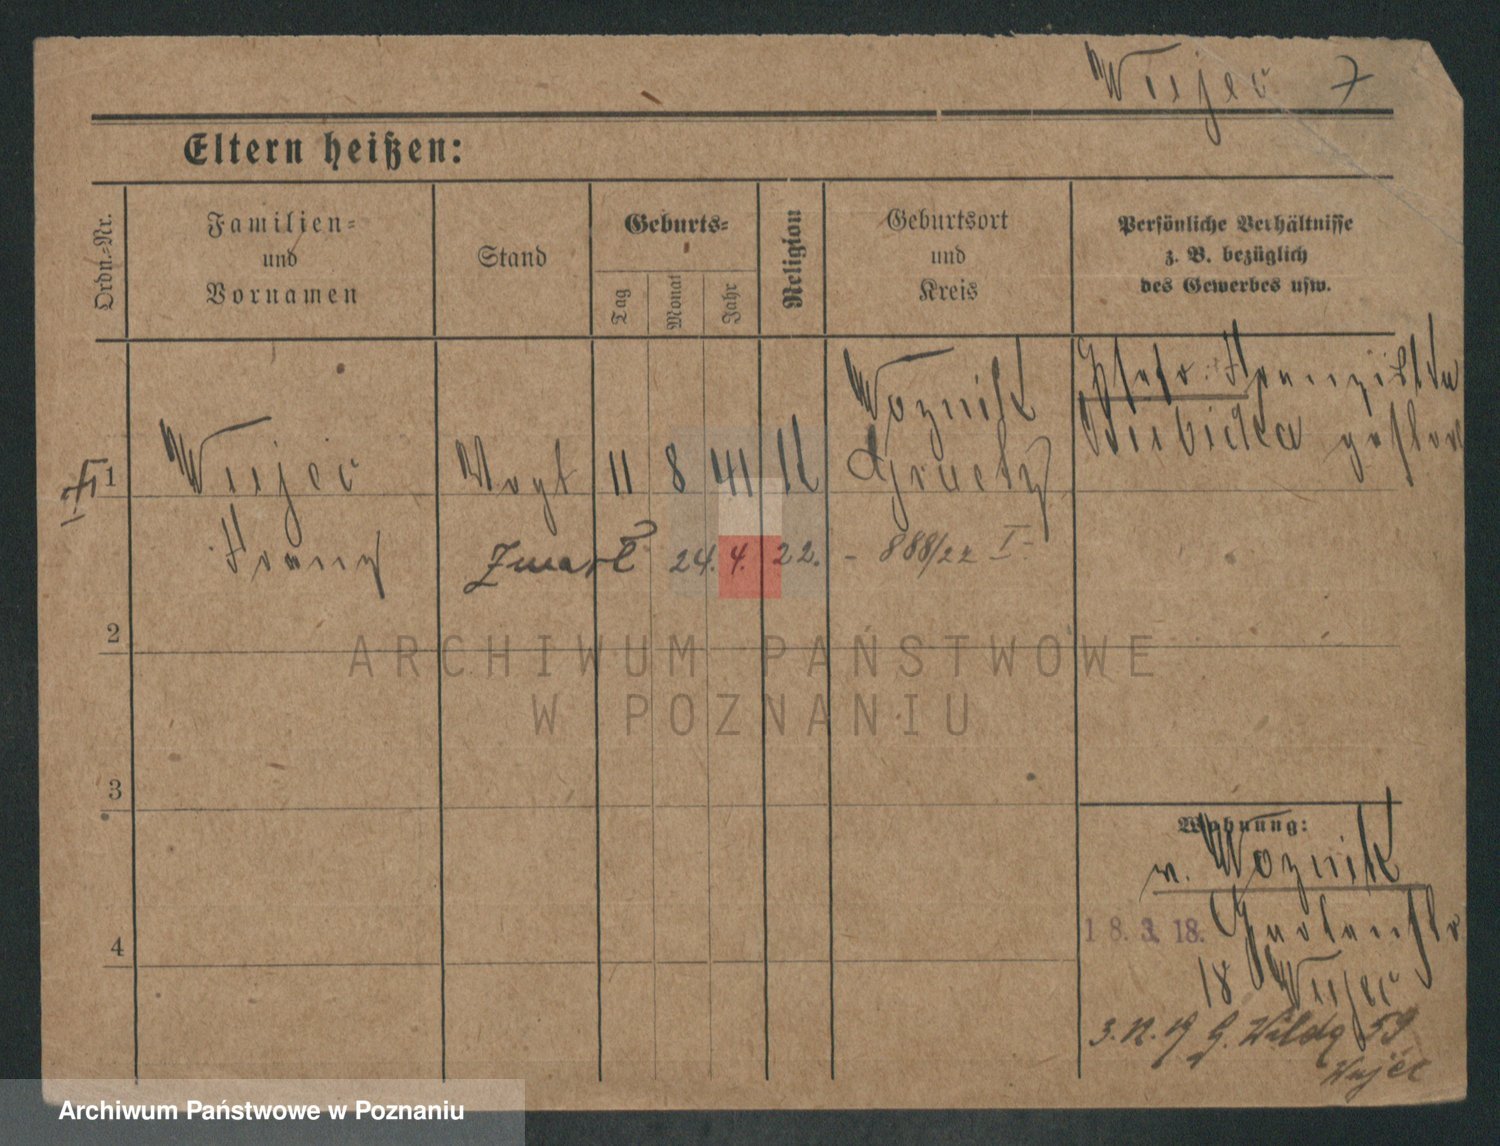 Wujec 7
Eltern heißen:
Ordn.-Nr.
Familien-
und
Vornamen
Stand
Geburts-
Tag
Monat
Jahr
Religion
Geburtsort
und
Kreis
Persönliche Verhältnisse
z. B. bezüglich
des Gewerbes usw.
1 Wujec Vogt 11 8 41 K Woznik
Graetz
Franz
Franziska
Zmarł 24. 4. 22. - 888/22 I
2
3
4
Wohnung:
v. Woznik
18. 3. 18. Gartenstr
18 Wujec
G. Wilda 59
Wujec
ARCHIWUM PAŃSTWOWE
W POZNANIU
Archiwum Państwowe w Poznaniu